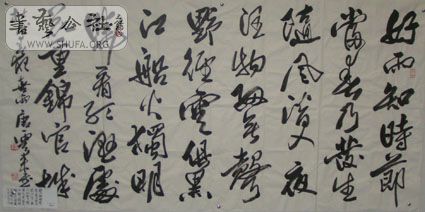 好雨知時節
當春乃發生
隨風潛入夜
潤物細無聲
野徑雲俱黑
江船火獨明
曉看紅濕處
花重錦官城
WWW.SHUFA.ORG